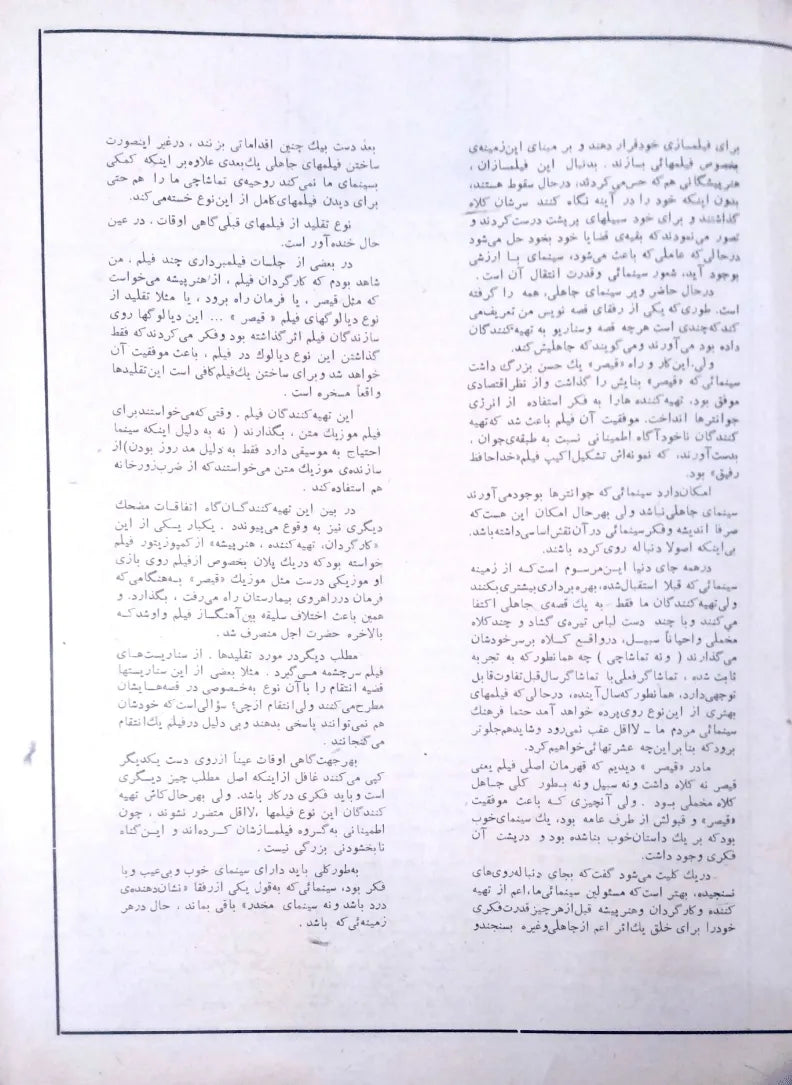 برای فیلمسازی خودقرار دهند و بر مبنای این‌زمینه‌ی
بخصوص فیلمهائی بسازند . بدنبال این فیلمسازان ،
هنرپیشگانی هم که حس‌می‌کردند، درحال سقوط هستند،
بدون اینکه خود را در آینه نگاه کنند سرشان کلاه
گذاشتند و برای خود سبیلهای پرپشت درست‌کردند و
تصور می‌نمودندکه بقیه‌ی قضایا خود بخود حل می‌شود
درحالی‌که عاملی‌که باعث می‌شود، سینمای بـا ارزشی
بوجود آید، شعور سینمائی وقدرت انتقال آن است .
درحال حاضر ویر سینمای جاهلی، همه را گرفته
است. طوری‌که یکی از رفقای قصه نویس من تعریف‌می
کندکه‌چندی است هرچه قصه وسناریو به تهیه‌کنندگان
داده بود می‌آورند ومی‌گویند که جاهلیش‌کند.
ولی‌این‌کار و راه «قیصر» یك حسن بزرگ داشت
سینمائی‌که «قیصر» بنایش را گذاشت واز نظراقتصادی
موفق بود، تهیه‌کننده هارا به فکر استفاده از انرژی
جوانترها انداخت. موفقیت آن فیلم باعث شد که‌تهیه
کنندگان ناخودآگاه اطمینانی نسبت به طبقه‌ی‌جوان ،
بدست‌آورند، که نمونه‌اش تشکیل‌اکیپ فیلم«خداحافظ
رفیق» بود.
امکان‌دارد سینمائی‌که جوانترها بوجودمی‌آورند
سینمای جاهلی‌نباشد ولی بهرحال امکان این هست‌که
صرفا اندیشه وفکرسینمائی درآن‌نقش‌اساسی‌داشته‌باشد.
بی‌اینکه اصولا دنباله روی‌کرده باشند.
درهمه جای دنیا ایـن‌مرسوم اسـت‌کـه از زمینه
سینمائی‌که قبلا استقبال‌شده، بهره‌برداری‌بیشتری‌بکنند
ولی‌تهیه‌کنندگان ما فقط به یك قصه‌ی جاهلی اکتفا
می‌کنند وبا چند دست لباس تیره‌ی گشاد و چندکلاه
مخملی واحیاناً سبیـل، درواقع کـلاه برسرخودشان
می‌گذارند ( ونه تماشاچی ) چه همانطورکه به تجربه
ثابت شده ، تماشاگرفعلی‌با تماشاگرسال‌قبل‌تفاوت‌قابل
توجهی‌دارد، همانطورکه‌سال‌آینده، درحالی‌که فیلمهای
بهتری از این‌نوع روی‌پرده خواهد آمد حتما فرهنك
سینمائی مردم ما ــ لااقل عقب نمی‌رود وشایدهم‌جلوتر
برودکه بنابراین‌چه عشرتهائی‌خواهیم‌کرد.
مادر «قیصر » دیدیم که قهرمان اصلی فیلم یعنی
قیصر نه کلاه داشت ونه سبیل ونه بـطور کلی جـاهل
کلاه مخملی بـود . ولی آنچیزی کـه باعث موفقیت
«قیصر» و قبولش از طرف عامه بود، یك سینمای‌خوب
بودکه بر یك داستان‌خوب بناشده بود و درپشت آن
فکری وجود داشت.
دریك کلیت می‌شود گفت‌که بجای دنباله‌روی‌های
نسنجیده، بهتر است‌که مسئولین سینمائی‌ما،اعم از تهیه
کننده وکارگردان وهنرپیشه قبل‌ازهرچیز قدرت‌فکری
خودرا برای خلق یك‌اثر اعم ازجاهلی‌وغیره بسنجندو
بعد دست بیك چنین اقداماتی بزنند ، درغیر اینصورت
ساختن فیلمهای جاهلی یك‌بعدی علاوه‌بر اینکه کمکی
بسینمای ما نمی‌کند روحیه‌ی تماشاچی ما را هم حتی
برای دیدن فیلمهای‌کامل از این‌نوع خسته‌می‌کند.
نوع تقلید از فیلمهای قبلی‌گاهی اوقات ، در عین
حال خنده‌آور است.
در بعضی از جلسات فیلمبرداری چند فیلم ، من
شاهد بودم که کارگردان فیلم ، از/هنرپیشه می‌خواست
که مثل قیصر ، یا فرمان راه برود ، یا مثلا تقلید از
نوع دیالوگهای فیلم « قیصر » ... این دیالوگها روی
سازندگان فیلم اثرگذاشته بود وفکر می‌کردندکه فقط
گذاشتن این نوع دیالوك در فیلم ، باعث موفقیت آن
خواهد شد وبرای ساختن یك‌فیلم‌کافی است این‌تقلیدها
واقعاً مسخره است .
این تهیه‌کنندگان فیلم . وقتی‌که‌می‌خواستندبرای
فیلم موزیك متن ، بگذارند ( نه به دلیل اینکه سینما
احتیاج به موسیقی دارد فقط به دلیل مد روز بودن)از
سازنده‌ی موزیك متن می‌خواستندکه از ضرب‌زورخانه
هم استفاده‌کند .
در بین این تهیه‌کنندگـان‌گاه اتفاقـات مضحك
دیگری نیز به وقوع می‌پیوندد . یکبار یـکی از این
«کارگردان، تهیه‌کننده ، هنرپیشه» ازکمپوزیتور فیلم
خواسته بودکه دریك پلان بخصوص ازفیلم روی بازی
او موزیکی درست مثل موزیك «قیصر» بـه‌هنگامی‌که
فرمان درراهروی بیمارستان راه می‌رفت ، بگذارد. و
همین باعث اختلاف سلیقه بین‌آهنگساز فیلم واوشدکـه
بالاخره حضرت اجل منصرف شد .
مطلب دیگردر مورد تقلیدها . از سناریست‌هـای
فیلم سرچشمه مـی‌گیرد . مثلا بعضی از این سناریستها
قضیه انتقام را باآن نوع به‌خصوصی در قصه‌هـایشان
مطرح‌می‌کنند ولی‌انتقام ازچی؟ سؤالی‌است‌که خودشان
هم نمی‌توانند پاسخی بدهند وبی دلیل درفیلم یك‌انتقام
می‌گنجانند .
بهرجهت‌گاهی اوقات عیناً ازروی دست یکدیگر
کپی می‌کنند غافل ازاینکه اصل مطلب چیز دیـگری
است وباید فکری درکار باشد. ولی بهرحال‌کاش تهیه
کنندگان این نوع فیلمها ،لااقل متضرر نشوند ، چون
اطمینانی به‌گروه فیلمسازشان کـرده‌اند و ایـن‌گناه
نابخشودنی بزرگی نیست .
به‌طورکلی باید دارای سینمای خوب وبی‌عیب وبا
فکر بود، سینمائی‌که به‌قول یکی ازرفقا «نشان‌دهنده‌ی
درد باشد ونه سینمای مخدر» باقی بماند ، حال درهر
زمینه‌ئی‌که باشد .